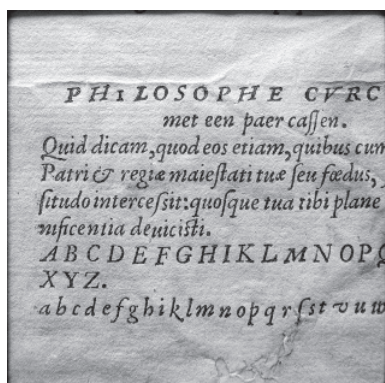 PHILOSOPHE CVRC
met een paer cassen.
Quid dicam, quod eos etiam, quibus cum
Patri & regiæ maiestati tuæ seu fœdus,
situdo intercessit: quosque tua tibi plane
nificentia deuicisti.
ABCDEFGHIKLMNOPQ
XYZ.
abcdefghiklmnopqrſstvuw